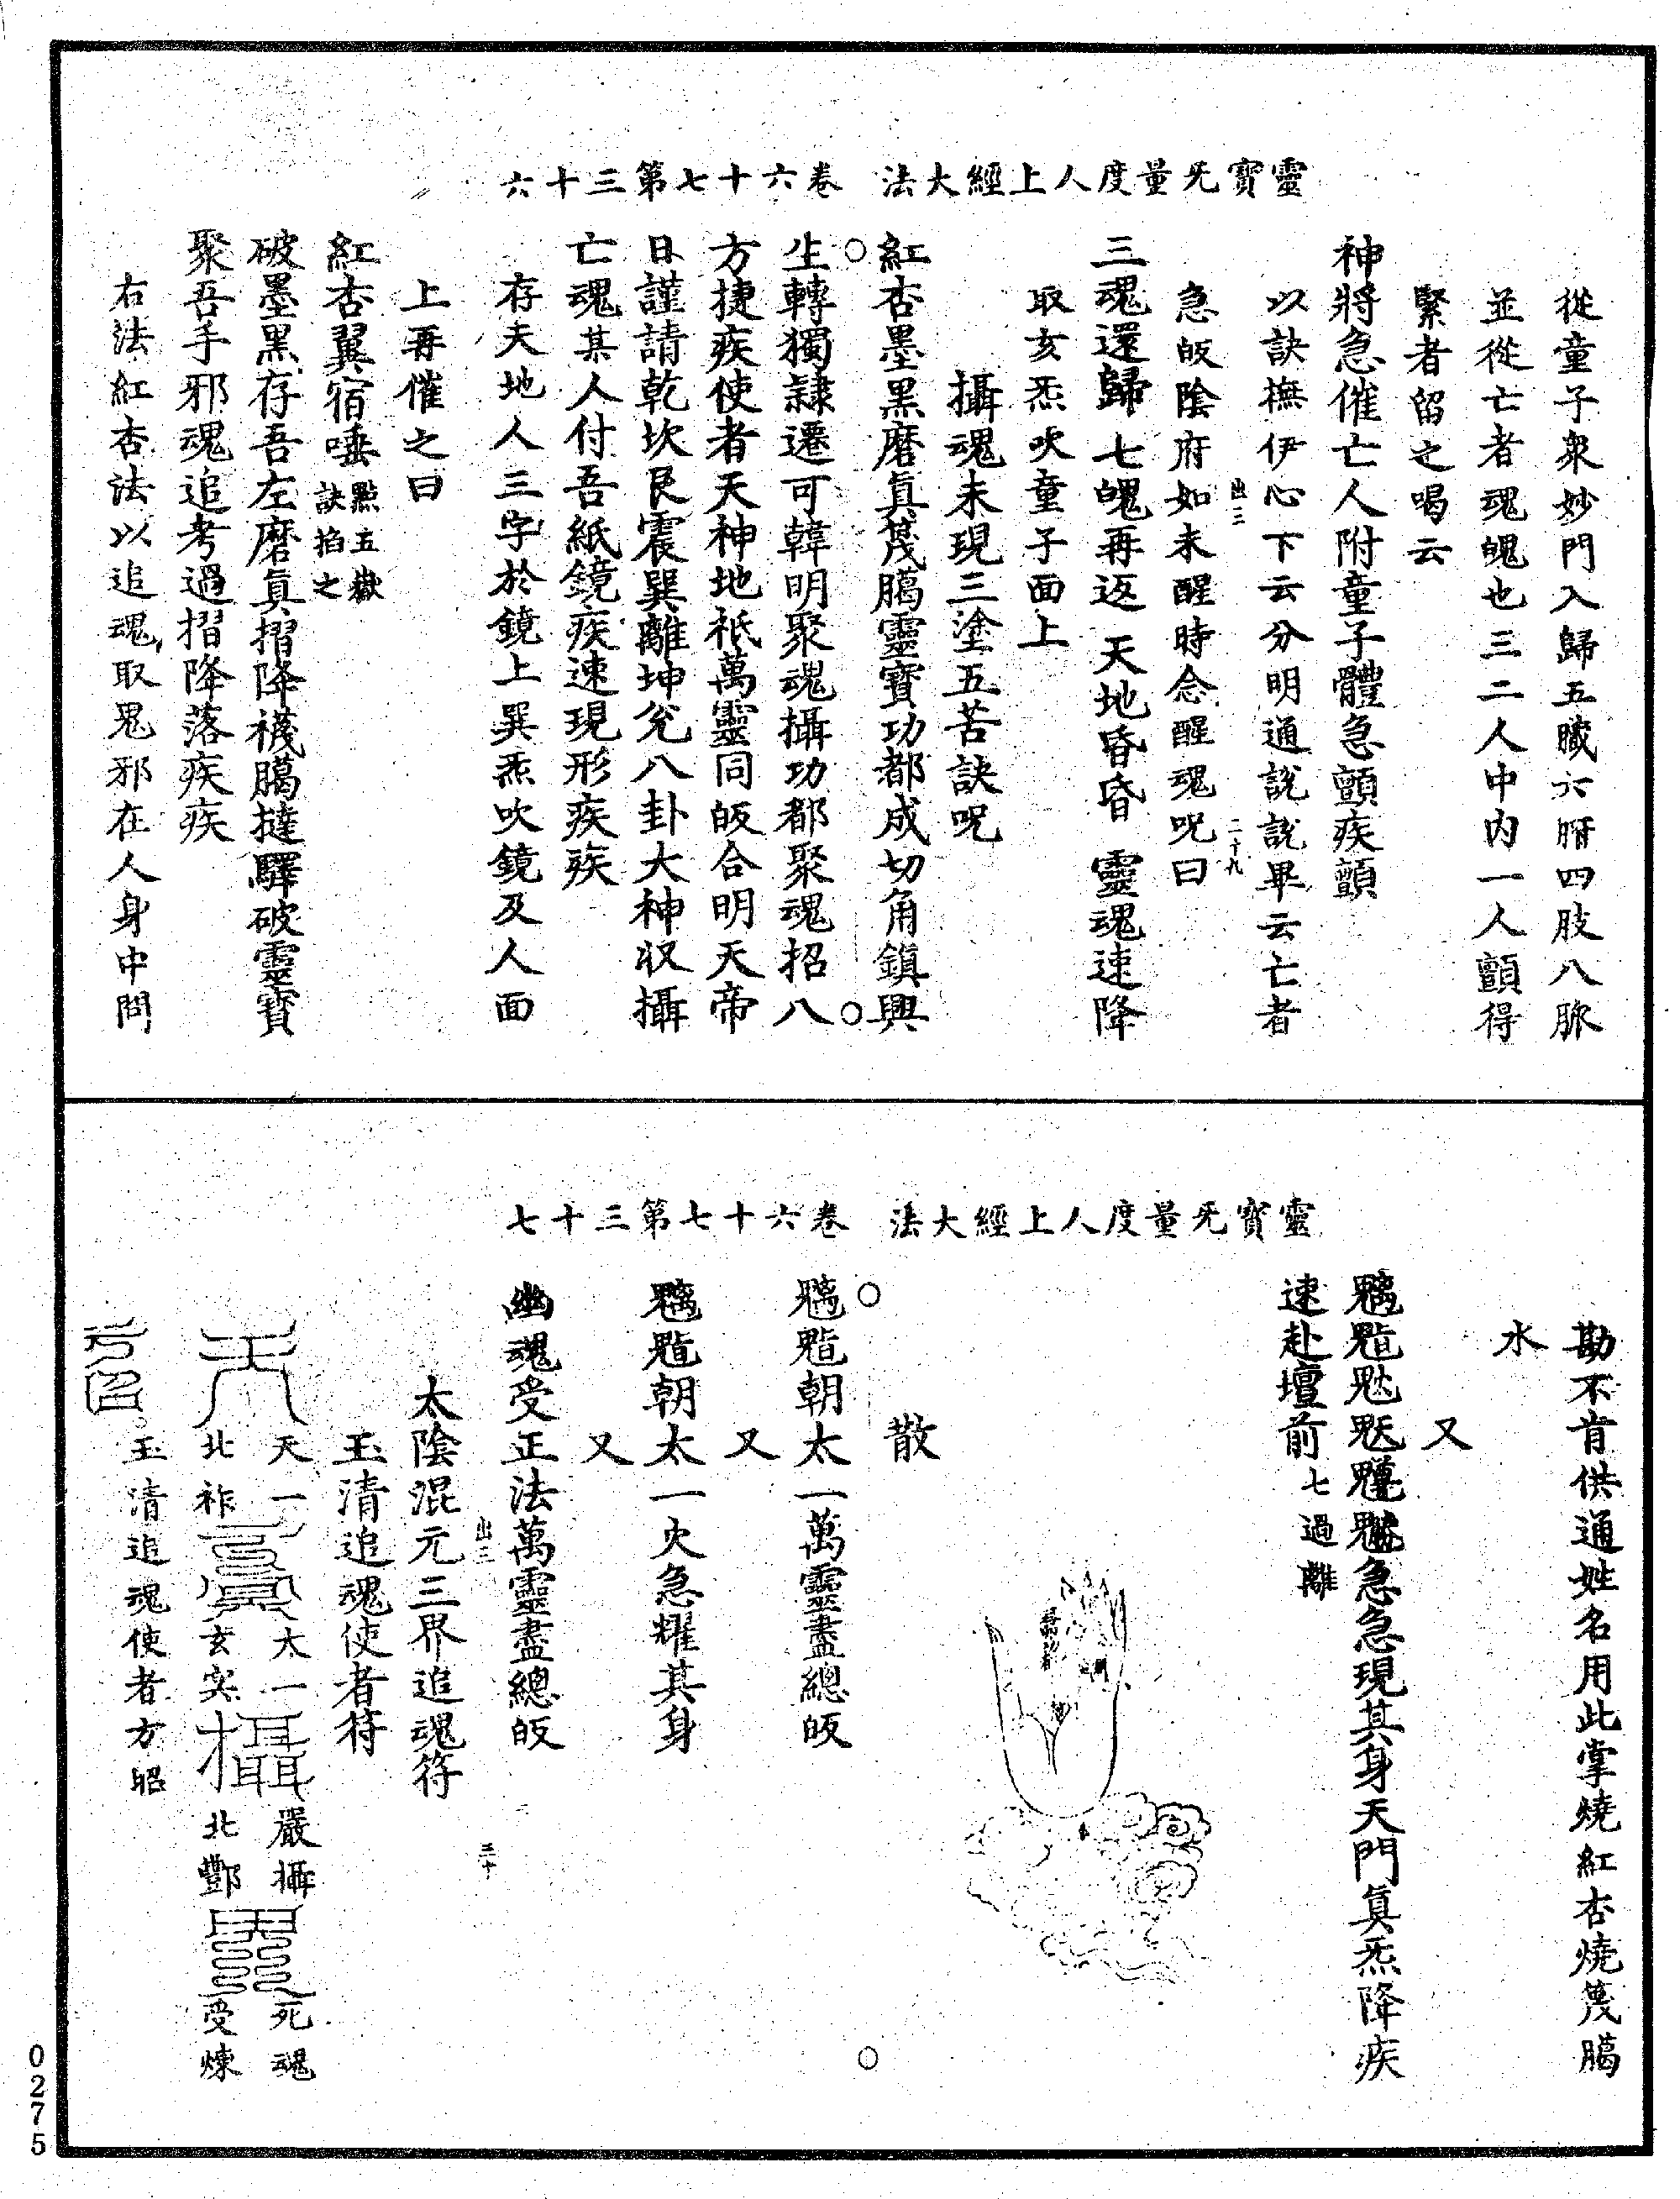 靈寶无量度人上經大法　卷六十七第三十六
從童子衆妙門入歸五臟六腑四肢八脉
並從亡者魂魄也三二人中内一人顫得
緊者留之喝云
神將急催亡人附童子體急顫疾顫
以訣撫伊心下云分明通說說畢云亡者
急皈陰府如未醒時念醒魂呪曰
出三　二十九
三魂還歸七魄再返　天地昏昏　靈魂速降
取亥炁吹童子面上
攝魂未現三塗五苦訣呪
紅杏墨黑磨眞篾臈靈寶功都成切角鎮興
生轉獨隷遷可韓明聚魂攝功都聚魂招八
方捷疾使者天神地祇萬靈同皈合明天帝
日謹請乾坎艮震巽離坤兊八卦大神収攝
亡魂某人付吾紙鏡疾速現形疾疾
存夫地人三字於鏡上巽炁吹鏡及人面
上再催之曰
紅杏翼宿唾點五嶽訣掐之
破墨黑存吾左磨眞摺降襪臈撻驛破靈寶
聚吾手邪魂追考過摺降落疾疾
右法紅杏法以追魂取鬼邪在人身中問
靈寶无量度人上經大法　卷六十七第三十七
勘不肯供通姓名用此掌燒紅杏燒篾臈
水
又
急急現其身天門眞炁降疾
速赴壇前七過離
散
朝太一萬靈盡總皈
又
朝太一火急耀其身
又
幽魂受正法萬靈盡總皈
出三　三十
太陰混元三界追魂符
玉清追魂使者符
天一　太一　嚴攝　死魂
北祚　玄冥　北酆　受煉
玉清追魂使者方昭
0275